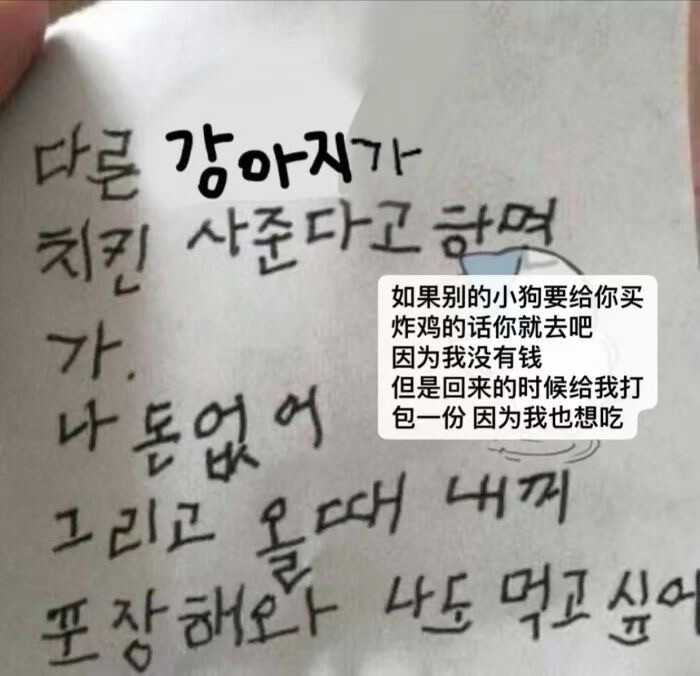 다른 강아지가
치킨 사준다고 하며
가.
나 돈 없어
그리고 올때 내꺼
포장해와 나도 먹고 싶어
如果别的小狗要给你买
炸鸡的话你就去吧
因为我没有钱
但是回来的时候给我打
包一份 因为我也想吃